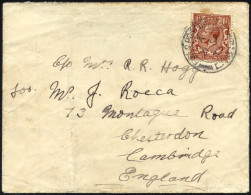 c/o Mr. A. R. Hogg
for Mr J. Rocca
73 Montague Road
Chesterdon
Cambridge
England